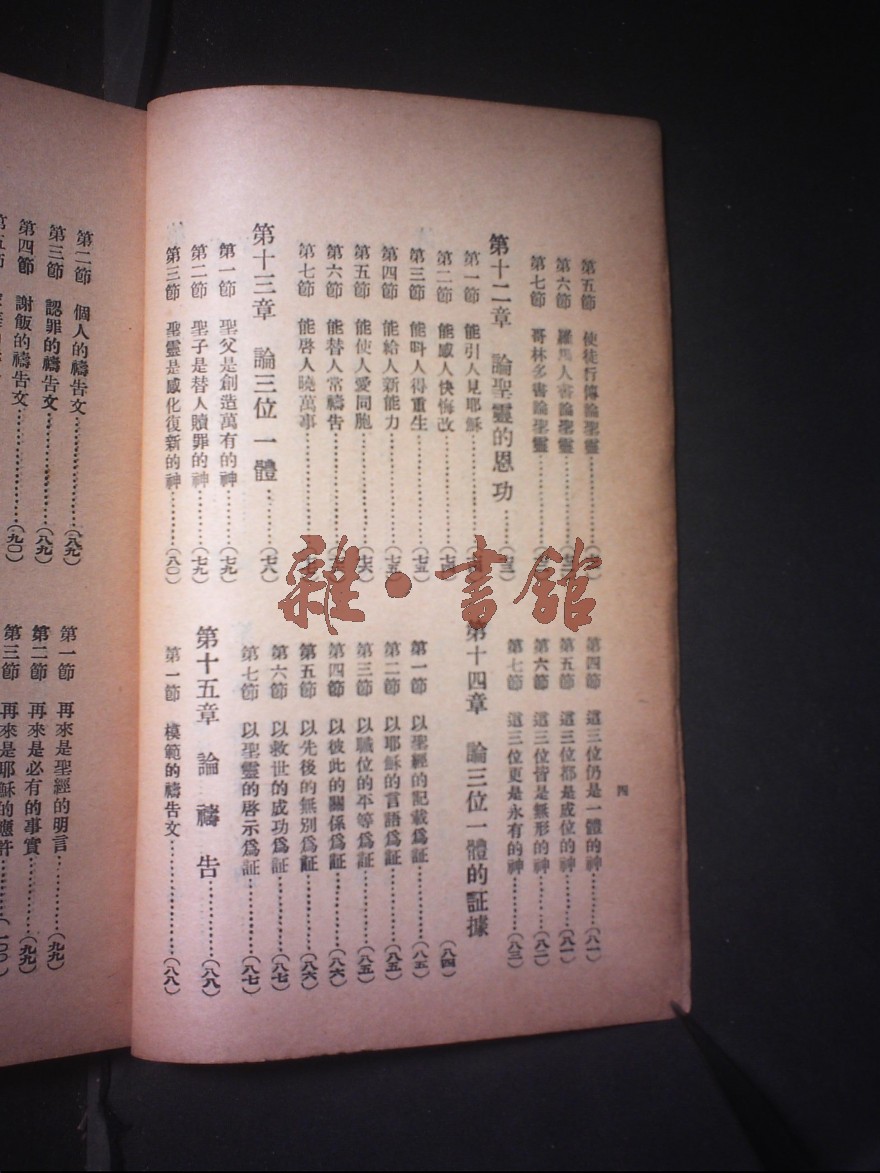 第五節 使徒行傳論聖靈
第六節 羅馬人書論聖靈
第七節 哥林多書論聖靈
第十二章 論聖靈的恩功
第一節 能引人見耶穌
第二節 能感人快悔改
第三節 能呌人得重生……(七五)
第四節 能給人新能力……(七五)
第五節 能使人愛同胞……(七六)
第六節 能替人常禱告
第七節 能啓人曉萬事
第十三章 論三位一體……(七八)
第一節 聖父是創造萬有的神……(七九)
第二節 聖子是替人贖罪的神……(七九)
第三節 聖靈是感化復新的神……(八〇)
四
第四節 這三位仍是一體的神……(八一)
第五節 這三位都是成位的神……(八一)
第六節 這三位皆是無形的神……(八二)
第七節 這三位更是永有的神……(八三)
第十四章 論三位一體的証據
(八四)
第一節 以聖經的記載爲証……(八五)
第二節 以耶穌的言語爲証……(八五)
第三節 以職位的平等爲証……(八五)
第四節 以彼此的關係爲証……(八六)
第五節 以先後的無別爲証……(八六)
第六節 以救世的成功爲証……(八七)
第七節 以聖靈的啓示爲証……(八七)
第十五章 論禱告……(八八)
第一節 模範的禱告文……(八八)
第二節 個人的禱告文……(八九)
第三節 認罪的禱告文……(八九)
第四節 謝飯的禱告文……(九〇)
第五節
第一節 再來是聖經的明言……(九九)
第二節 再來是必有的事實……(九九)
第三節 再來是耶穌的應許……(一〇〇)
雜·書館